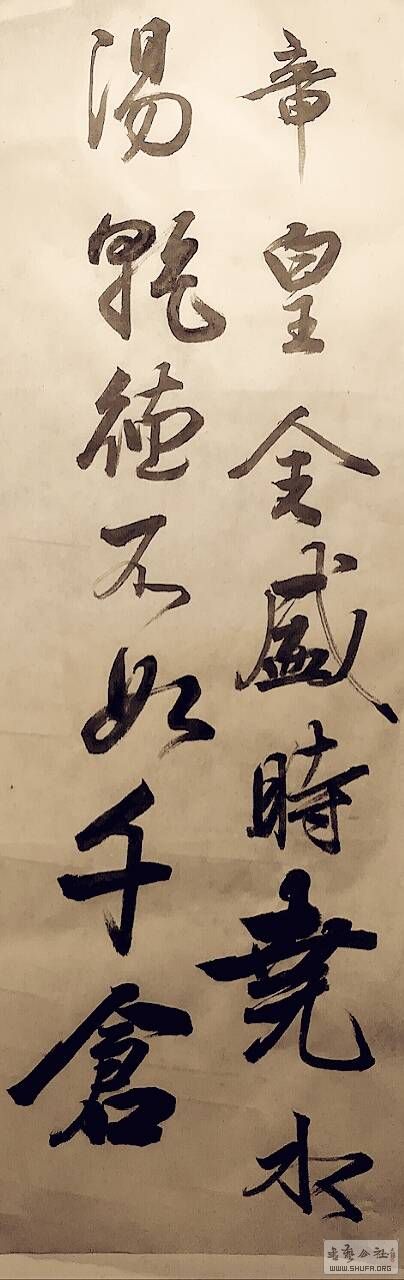 帝皇全盛時堯水
湯乾德不如千倉
書藝公社
WWW.SHUFA.ORG